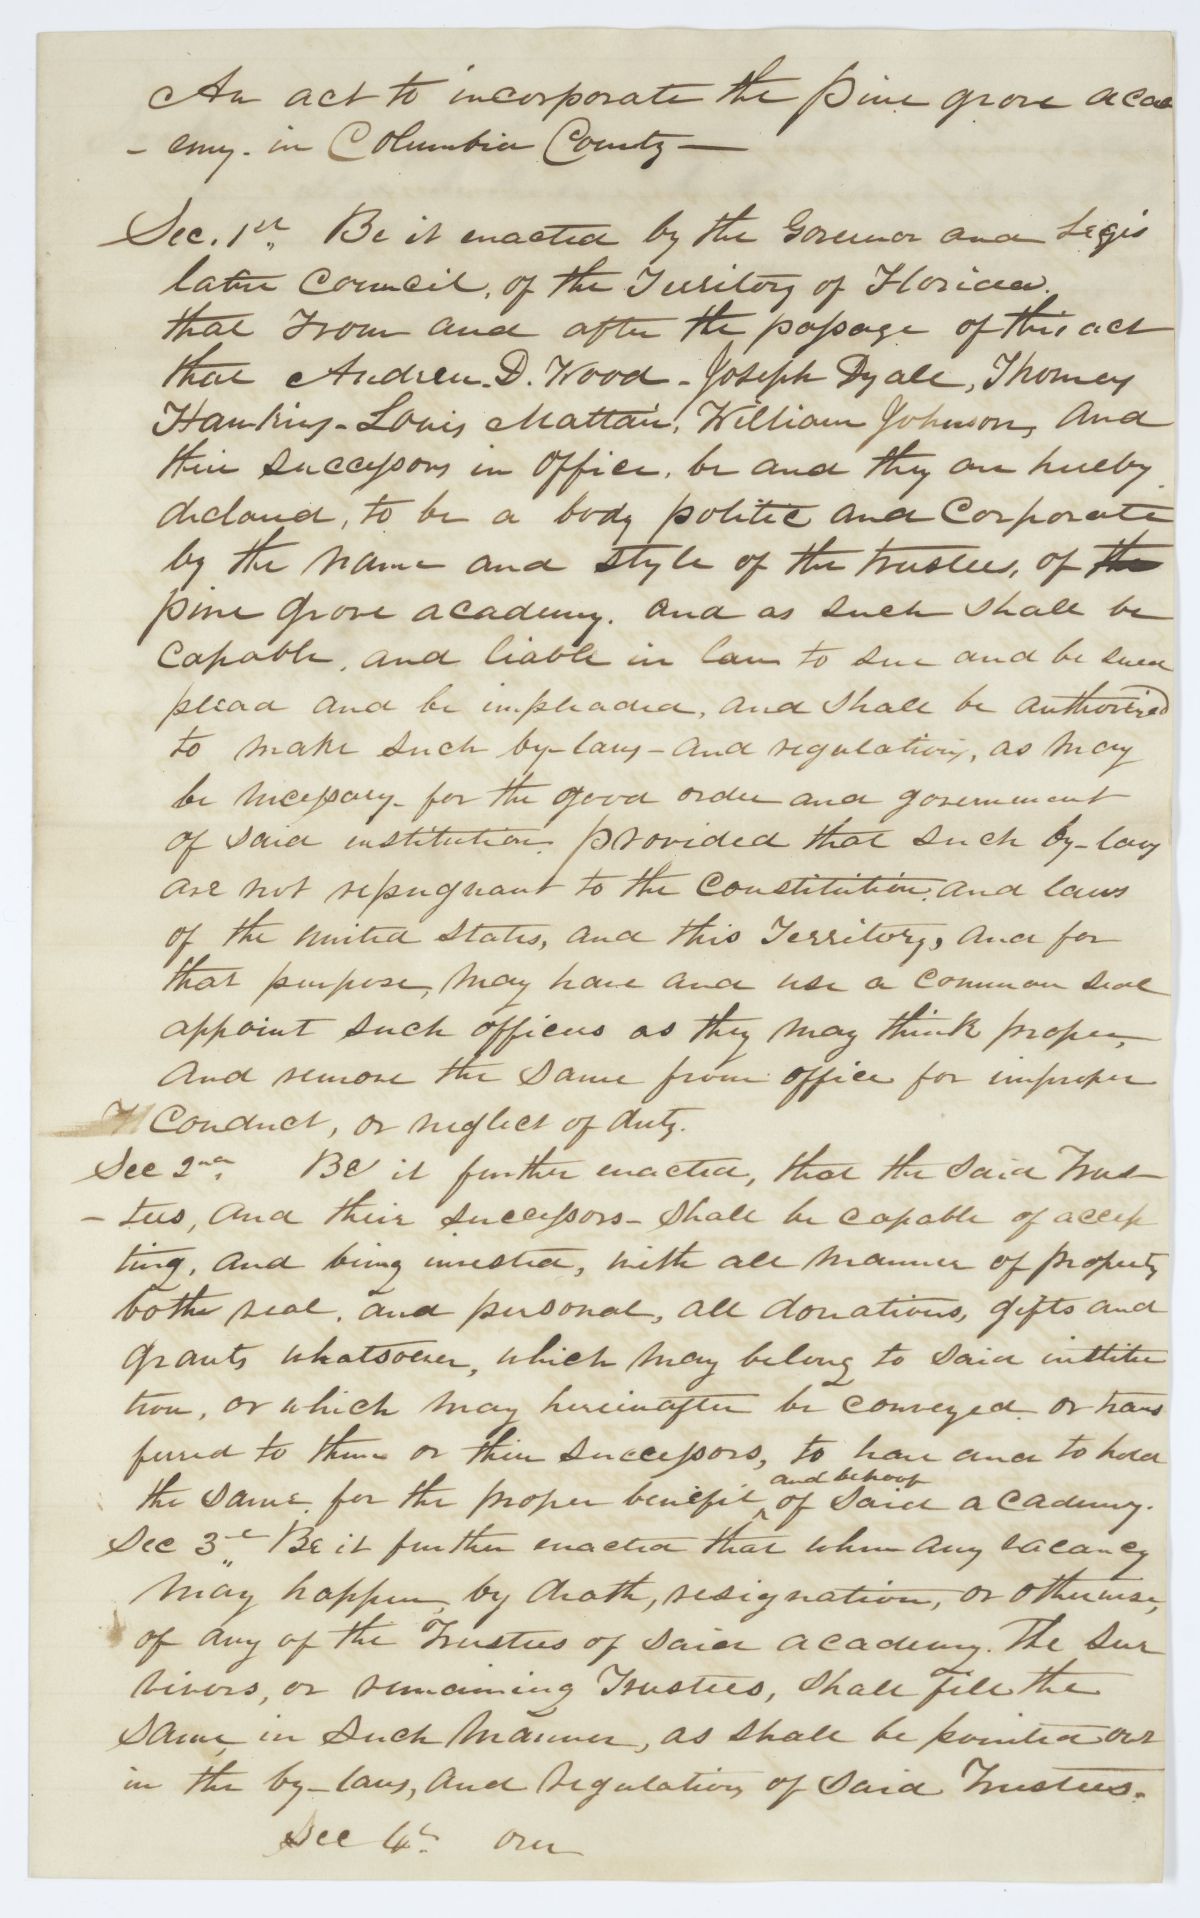 An act to incorporate the pine grove acad
- emy. in Columbia County —
Sec. 1st. Be it enacted by the Governor and Legis
lative Council, of the Territory of Florida.
that From and after the passage of this act
that Andrew. D. Wood - Joseph Dyall, Thomas
Hawkins - Louis Mattair, William Johnson, And
their successors in office, be and they are hereby
declared, to be a body politic and Corporate
by the name and style of the trustees, of the
pine grove academy. and as such shall be
Capable, and liable in law to sue and be sued
plead and be impleaded, and shall be authorised
to make such by-laws - and regulations, as may
be necessary - for the good order and government
of said institution. provided that such by-laws
are not repugnant to the Constitution, and laws
of the united States, and this Territory, and for
that purpose, may have and use a common seal
appoint such officers as they may think proper,
And remove the same from office for improper
Conduct, or neglect of duty.
Sec 2nd. Be it further enacted, that the said Trus-
- tees, and their successors - shall be capable of accep
ting, and being invested, with all manner of property
both real, and personal, all donations, gifts and
grants whatsoever, which may belong to said institu
tion, or which may hereinafter be conveyed or trans
ferred to them or their successors, to have and to hold
the same for the proper benefit and behoof of said academy.
Sec 3d Be it further enacted that when any vacancy
may happen, by death, resignation, or otherwise,
of any of the Trustees of said academy. The sur
vivors, or remaining Trustees, shall fill the
same, in such manner, as shall be pointed out
in the by-laws, and regulations of said Trustees.
Sec 4th. over